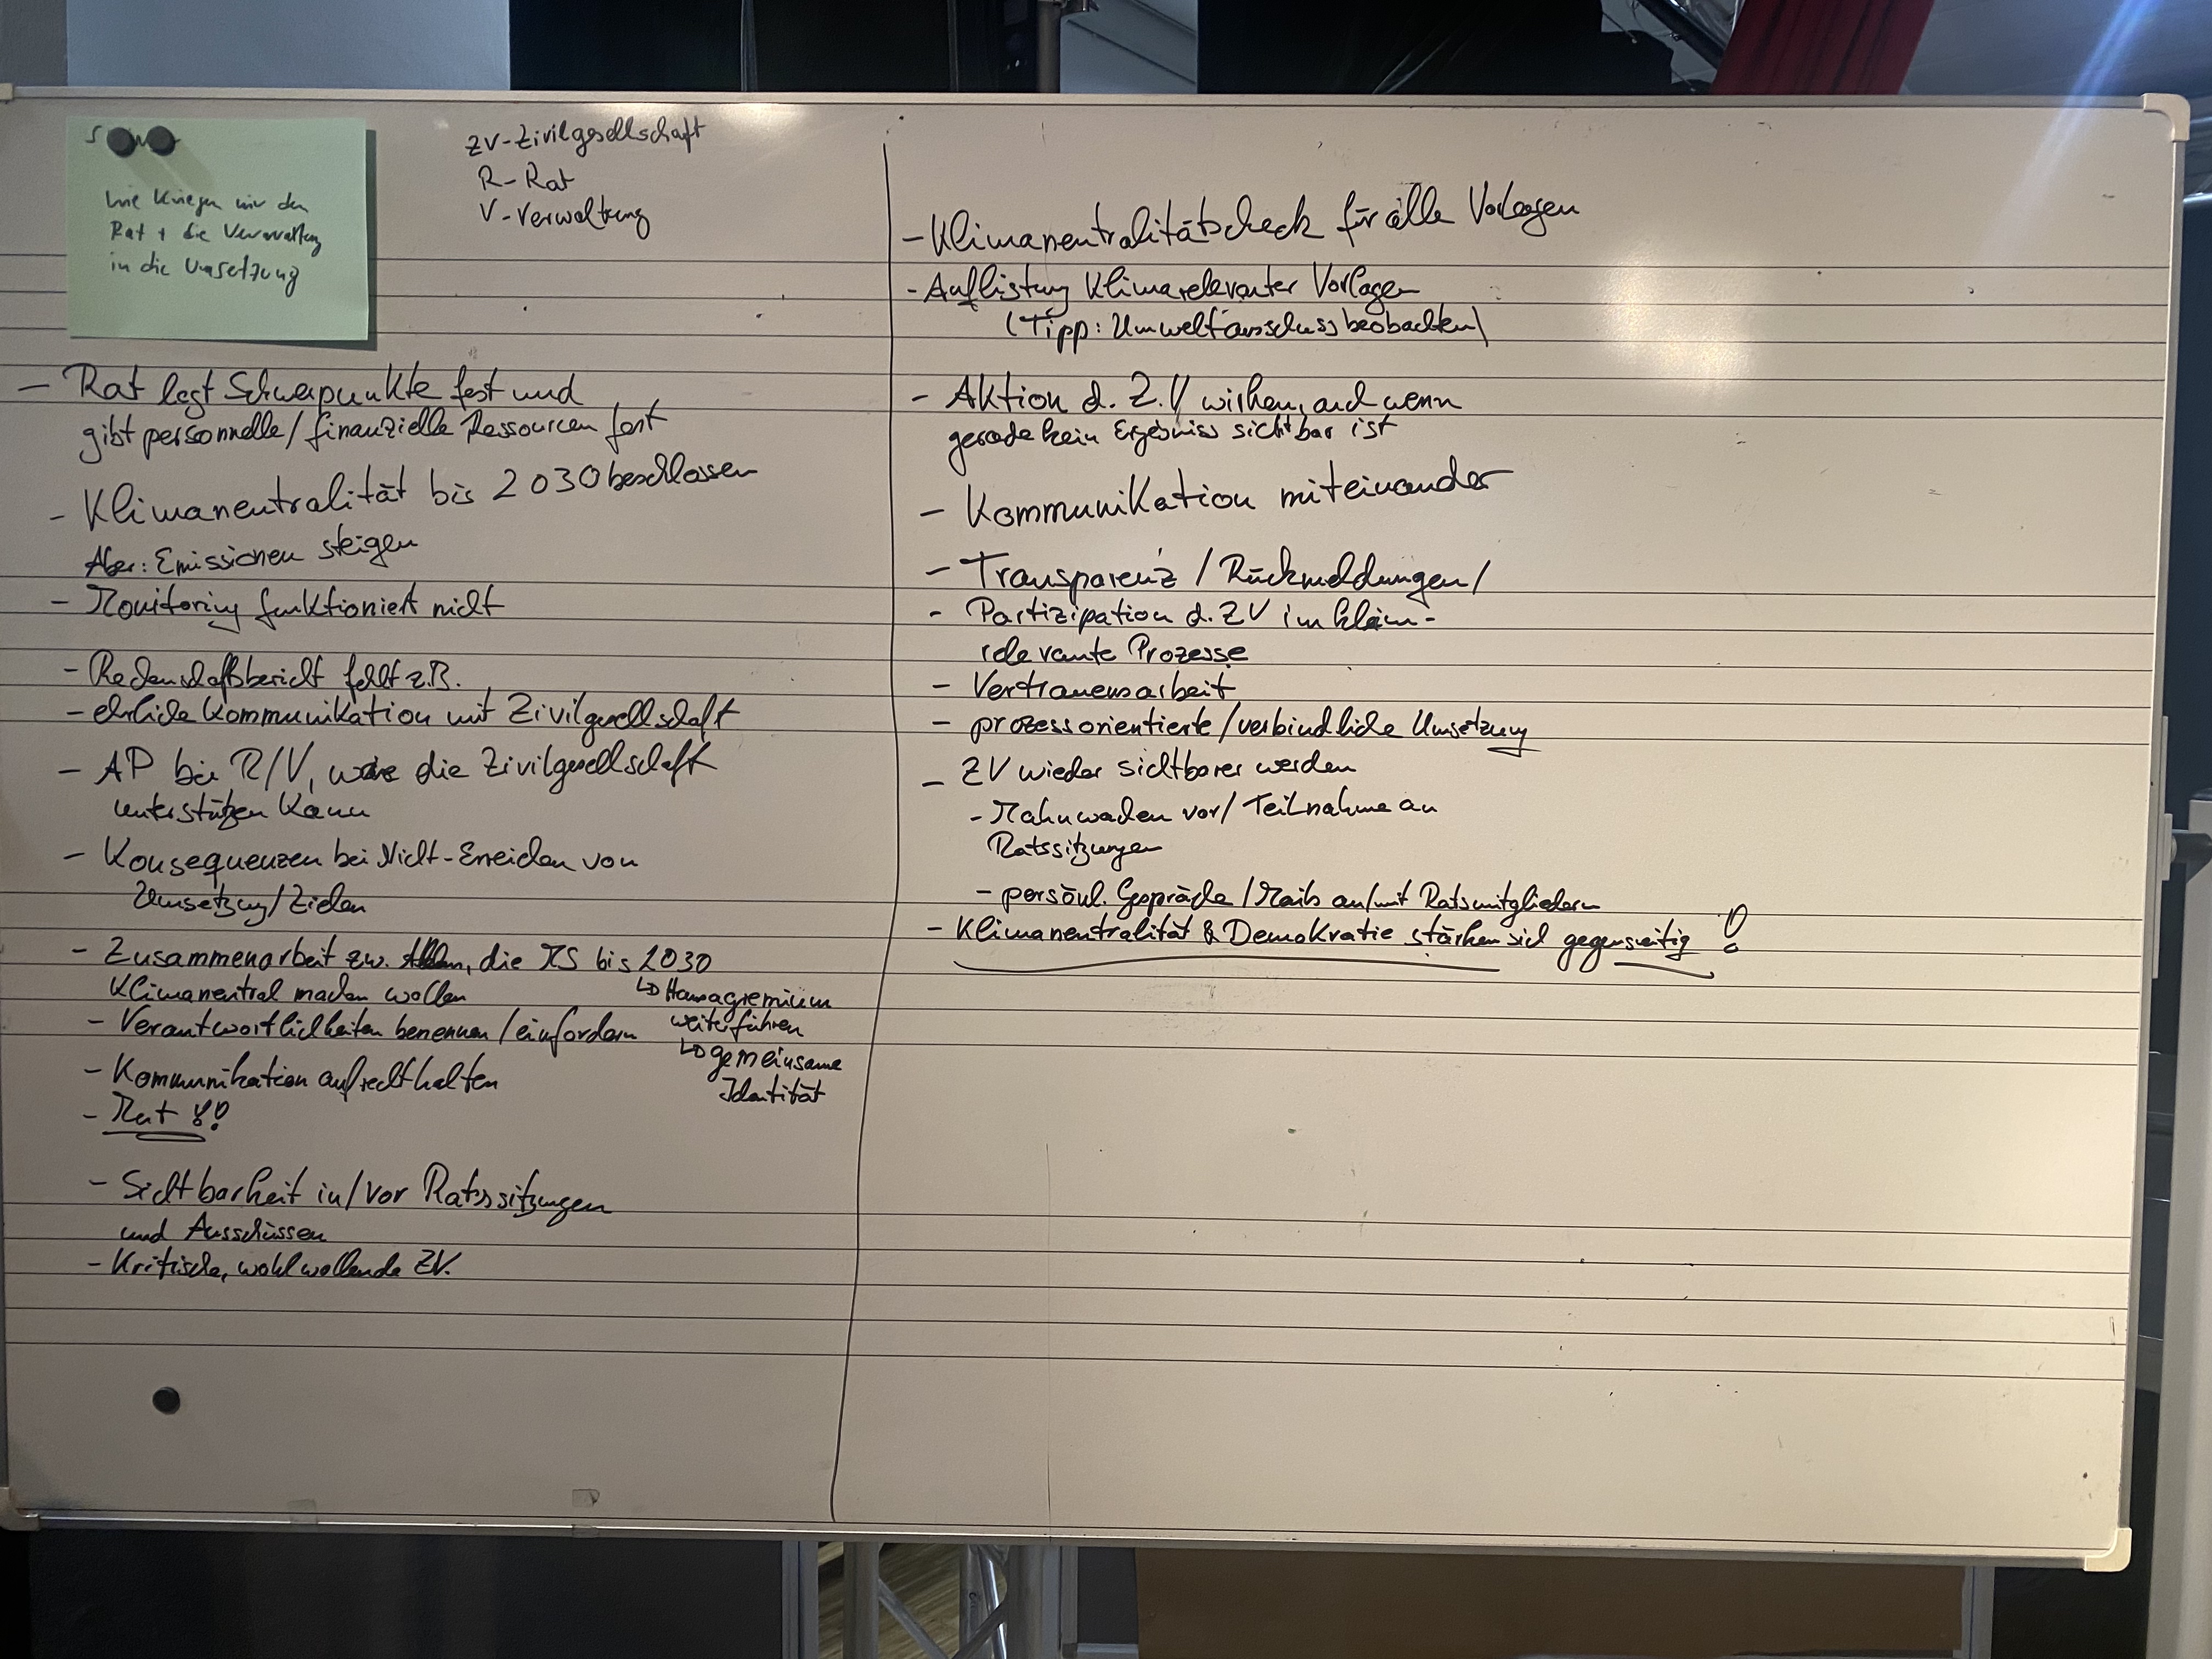 Wie kriegen wir den
Rat + die Verwaltung
in die Umsetzung
ZV-Zivilgesellschaft
R-Rat
V-Verwaltung
- Rat legt Schwerpunkte fest und
gibt personnelle/finanzielle Ressourcen fest
- Klimaneutralität bis 2030 beschlossen
Aber: Emissionen steigen
- Monitoring funktioniert nicht
- Rechenschaftsbericht fehlt z.B.
- ehrliche Kommunikation mit Zivilgesellschaft
- AP bei R/V, die Zivilgesellschaft
unterstützen kann
- Konsequenzen bei Nicht-Erreichen von
Umsetzung/Zielen
- Zusammenarbeit zw. Allen, die MS bis 2030
Klimaneutral machen wollen
↳ Hansagremium
weiterführen
↳ gemeinsame
Identität
- Verantwortlichkeiten benennen/einfordern
- Kommunikation aufrechthalten
- Mut !!
- Sichtbarkeit in/vor Ratssitzungen
und Ausschüssen
- Kritische, wohlwollende ZV.
- Klimaneutralitätscheck für alle Vorlagen
- Auflistung Klimarelevanter Vorlagen
(Tipp: Umweltausschuss beobachten)
- Aktion d. Z.V wirken, auch wenn
gerade kein Ergebniss sichtbar ist
- Kommunikation miteinander
- Transparenz / Rückmeldungen /
- Partizipation d. ZV im klim-
relevante Prozesse
- Vertrauensarbeit
- prozessorientierte/verbindliche Umsetzung
- ZV wieder sichtbarer werden
- Mahnwachen vor/Teilnahme an
Ratssitzungen
- persönl. Gespräche/Mails an/mit Ratsmitgliedern
- Klimaneutralität & Demokratie stärken sich gegenseitig !